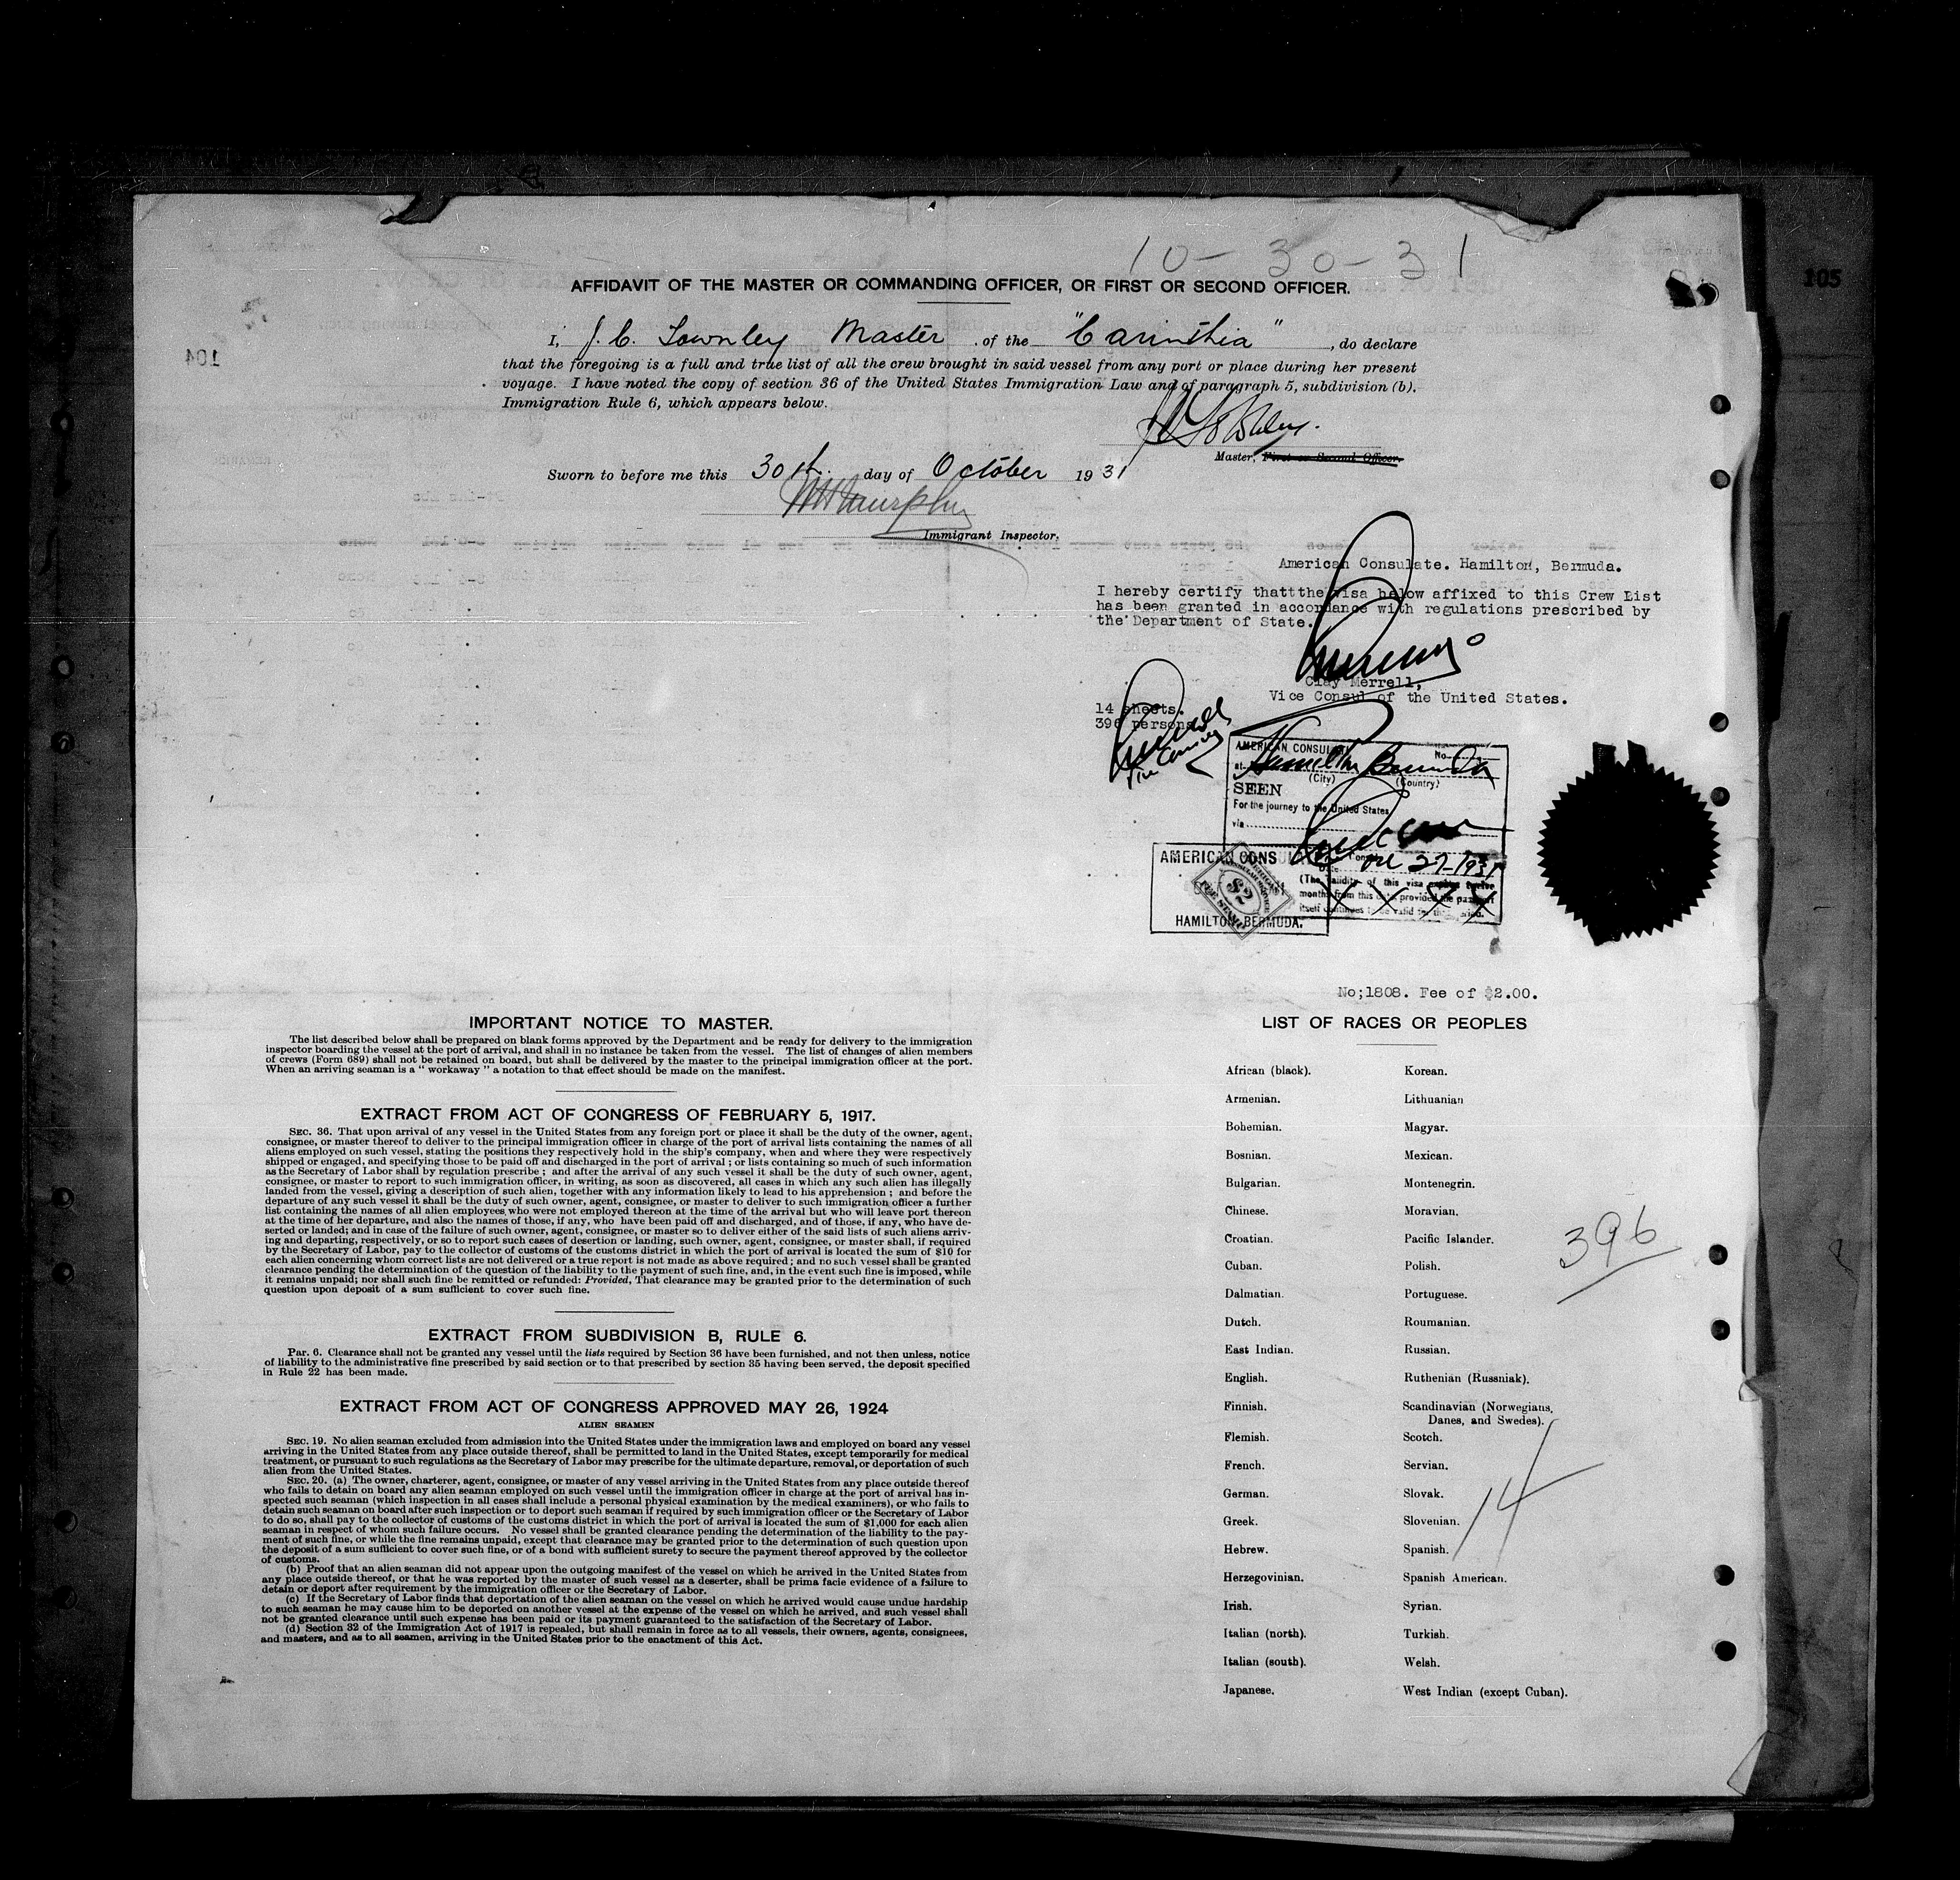 10-30-31
AFFIDAVIT OF THE MASTER OR COMMANDING OFFICER, OR FIRST OR SECOND OFFICER.
105
104
I, J. C. Townley Master of the "Carinthia", do declare
that the foregoing is a full and true list of all the crew brought in said vessel from any port or place during her present
voyage. I have noted the copy of section 36 of the United States Immigration Law and of paragraph 5, subdivision (b).
Immigration Rule 6, which appears below.
Master, First or Second Officer.
Sworn to before me this 30th day of October 1931
Immigrant Inspector.
American Consulate. Hamilton, Bermuda.
I hereby certify thatthe visa below affixed to this Crew List
has been granted in accordance with regulations prescribed by
the Department of State.
Clay Merrell,
Vice Consul of the United States.
14 sheets.
396 persons
AMERICAN CONSULATE No.
at Hamilton Bermuda
(City) (Country)
SEEN
For the journey to the United States
via
Oct 27-1931
(The validity of this visa expires twelve
months from this date provided the passport
itself continues to be valid for that period.
AMERICAN CONSUL
$2
FEE STAMP
HAMILTON, BERMUDA.
No;1808. Fee of $2.00.
IMPORTANT NOTICE TO MASTER.
The list described below shall be prepared on blank forms approved by the Department and be ready for delivery to the immigration
inspector boarding the vessel at the port of arrival, and shall in no instance be taken from the vessel. The list of changes of alien members
of crews (Form 689) shall not be retained on board, but shall be delivered by the master to the principal immigration officer at the port.
When an arriving seaman is a " workaway " a notation to that effect should be made on the manifest.
EXTRACT FROM ACT OF CONGRESS OF FEBRUARY 5, 1917.
SEC. 36. That upon arrival of any vessel in the United States from any foreign port or place it shall be the duty of the owner, agent,
consignee, or master thereof to deliver to the principal immigration officer in charge of the port of arrival lists containing the names of all
aliens employed on such vessel, stating the positions they respectively hold in the ship's company, when and where they were respectively
shipped or engaged, and specifying those to be paid off and discharged in the port of arrival ; or lists containing so much of such information
as the Secretary of Labor shall by regulation prescribe ; and after the arrival of any such vessel it shall be the duty of such owner, agent,
consignee, or master to report to such immigration officer, in writing, as soon as discovered, all cases in which any such alien has illegally
landed from the vessel, giving a description of such alien, together with any information likely to lead to his apprehension ; and before the
departure of any such vessel it shall be the duty of such owner, agent, consignee, or master to deliver to such immigration officer a further
list containing the names of all alien employees who were not employed thereon at the time of the arrival but who will leave port thereon
at the time of her departure, and also the names of those, if any, who have been paid off and discharged, and of those, if any, who have de-
serted or landed; and in case of the failure of such owner, agent, consignee, or master so to deliver either of the said lists of such aliens arriv-
ing and departing, respectively, or so to report such cases of desertion or landing, such owner, agent, consignee, or master shall, if required
by the Secretary of Labor, pay to the collector of customs of the customs district in which the port of arrival is located the sum of $10 for
each alien concerning whom correct lists are not delivered or a true report is not made as above required ; and no such vessel shall be granted
clearance pending the determination of the question of the liability to the payment of such fine, and, in the event such fine is imposed, while
it remains unpaid; nor shall such fine be remitted or refunded: Provided, That clearance may be granted prior to the determination of such
question upon deposit of a sum sufficient to cover such fine.
EXTRACT FROM SUBDIVISION B, RULE 6.
Par. 6. Clearance shall not be granted any vessel until the lists required by Section 36 have been furnished, and not then unless, notice
of liability to the administrative fine prescribed by said section or to that prescribed by section 35 having been served, the deposit specified
in Rule 22 has been made.
EXTRACT FROM ACT OF CONGRESS APPROVED MAY 26, 1924
ALIEN SEAMEN
SEC. 19. No alien seaman excluded from admission into the United States under the immigration laws and employed on board any vessel
arriving in the United States from any place outside thereof, shall be permitted to land in the United States, except temporarily for medical
treatment, or pursuant to such regulations as the Secretary of Labor may prescribe for the ultimate departure, removal, or deportation of such
alien from the United States.
SEC. 20. (a) The owner, charterer, agent, consignee, or master of any vessel arriving in the United States from any place outside thereof
who fails to detain on board any alien seaman employed on such vessel until the immigration officer in charge at the port of arrival has in-
spected such seaman (which inspection in all cases shall include a personal physical examination by the medical examiners), or who fails to
detain such seaman on board after such inspection or to deport such seaman if required by such immigration officer or the Secretary of Labor
to do so, shall pay to the collector of customs of the customs district in which the port of arrival is located the sum of $1,000 for each alien
seaman in respect of whom such failure occurs. No vessel shall be granted clearance pending the determination of the liability to the pay-
ment of such fine, or while the fine remains unpaid, except that clearance may be granted prior to the determination of such question upon
the deposit of a sum sufficient to cover such fine, or of a bond with sufficient surety to secure the payment thereof approved by the collector
of customs.
(b) Proof that an alien seaman did not appear upon the outgoing manifest of the vessel on which he arrived in the United States from
any place outside thereof, or that he was reported by the master of such vessel as a deserter, shall be prima facie evidence of a failure to
detain or deport after requirement by the immigration officer or the Secretary of Labor.
(c) If the Secretary of Labor finds that deportation of the alien seaman on the vessel on which he arrived would cause undue hardship
to such seaman he may cause him to be deported on another vessel at the expense of the vessel on which he arrived, and such vessel shall
not be granted clearance until such expense has been paid or its payment guaranteed to the satisfaction of the Secretary of Labor.
(d) Section 32 of the Immigration Act of 1917 is repealed, but shall remain in force as to all vessels, their owners, agents, consignees,
and masters, and as to all seamen, arriving in the United States prior to the enactment of this Act.
LIST OF RACES OR PEOPLES
African (black). Korean.
Armenian. Lithuanian
Bohemian. Magyar.
Bosnian. Mexican.
Bulgarian. Montenegrin.
Chinese. Moravian.
Croatian. Pacific Islander.
396
Cuban. Polish.
Dalmatian. Portuguese.
Dutch. Roumanian.
East Indian. Russian.
English. Ruthenian (Russniak).
Finnish. Scandinavian (Norwegians,
Danes, and Swedes).
Flemish. Scotch.
French. Servian.
German. Slovak.
14
Greek. Slovenian.
Hebrew. Spanish.
Herzegovinian. Spanish American.
Irish. Syrian.
Italian (north). Turkish.
Italian (south). Welsh.
Japanese. West Indian (except Cuban).